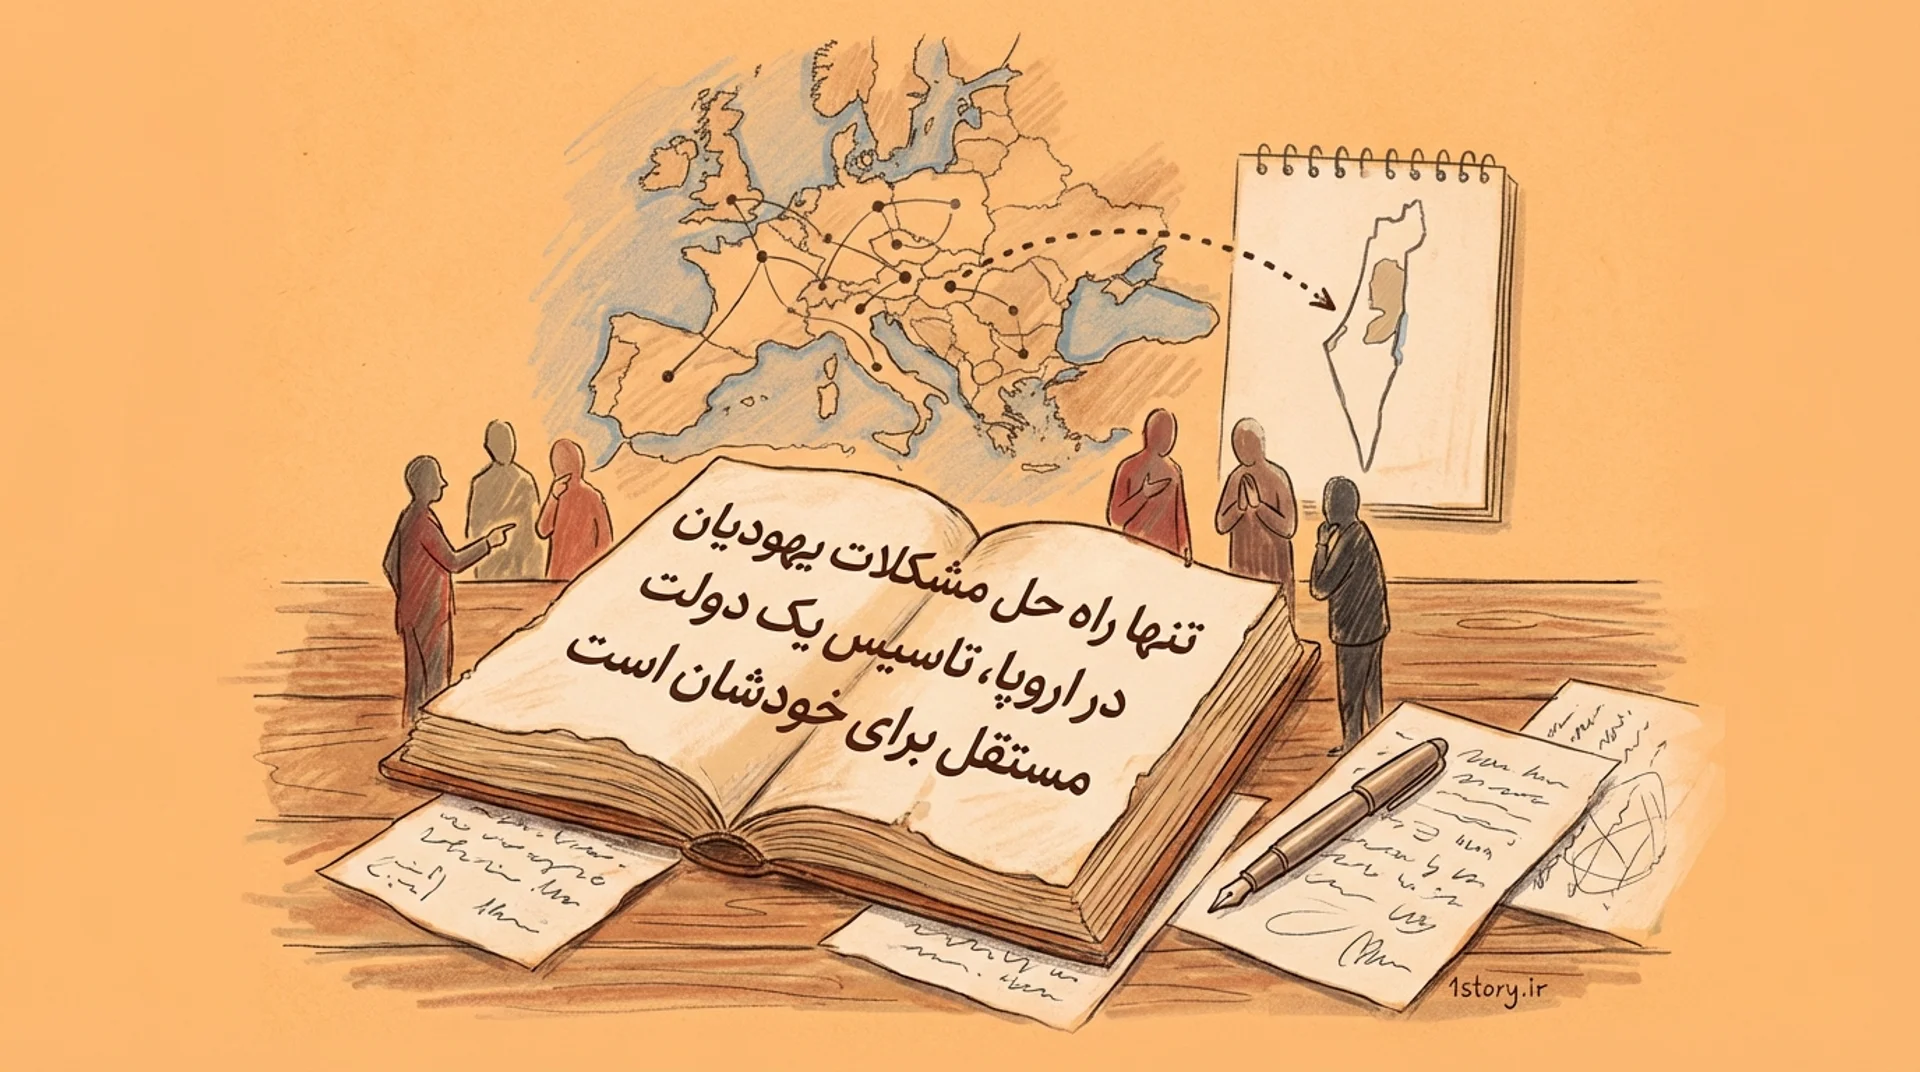 تنها راه حل مشکلات یهودیان
در اروپا، تاسیس یک دولت
مستقل برای خودشان است
1story.ir